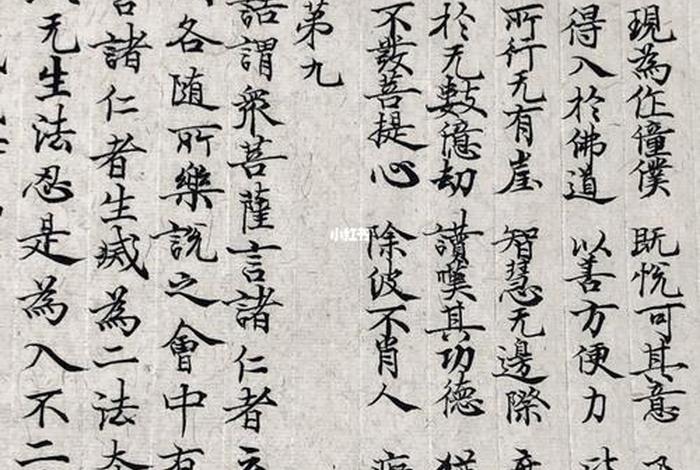 現為作僮僕 既悅可其意
得入於佛道 以善方便力
所行无有崖 智慧无邊際
於无數億劫 讚嘆其功德 猶
不發菩提心 除彼不肖人
第九
詰謂衆菩薩言諸仁者云
各随所樂說之會中有
言諸仁者生滅為二法本
无生法忍是為入不二
小红书